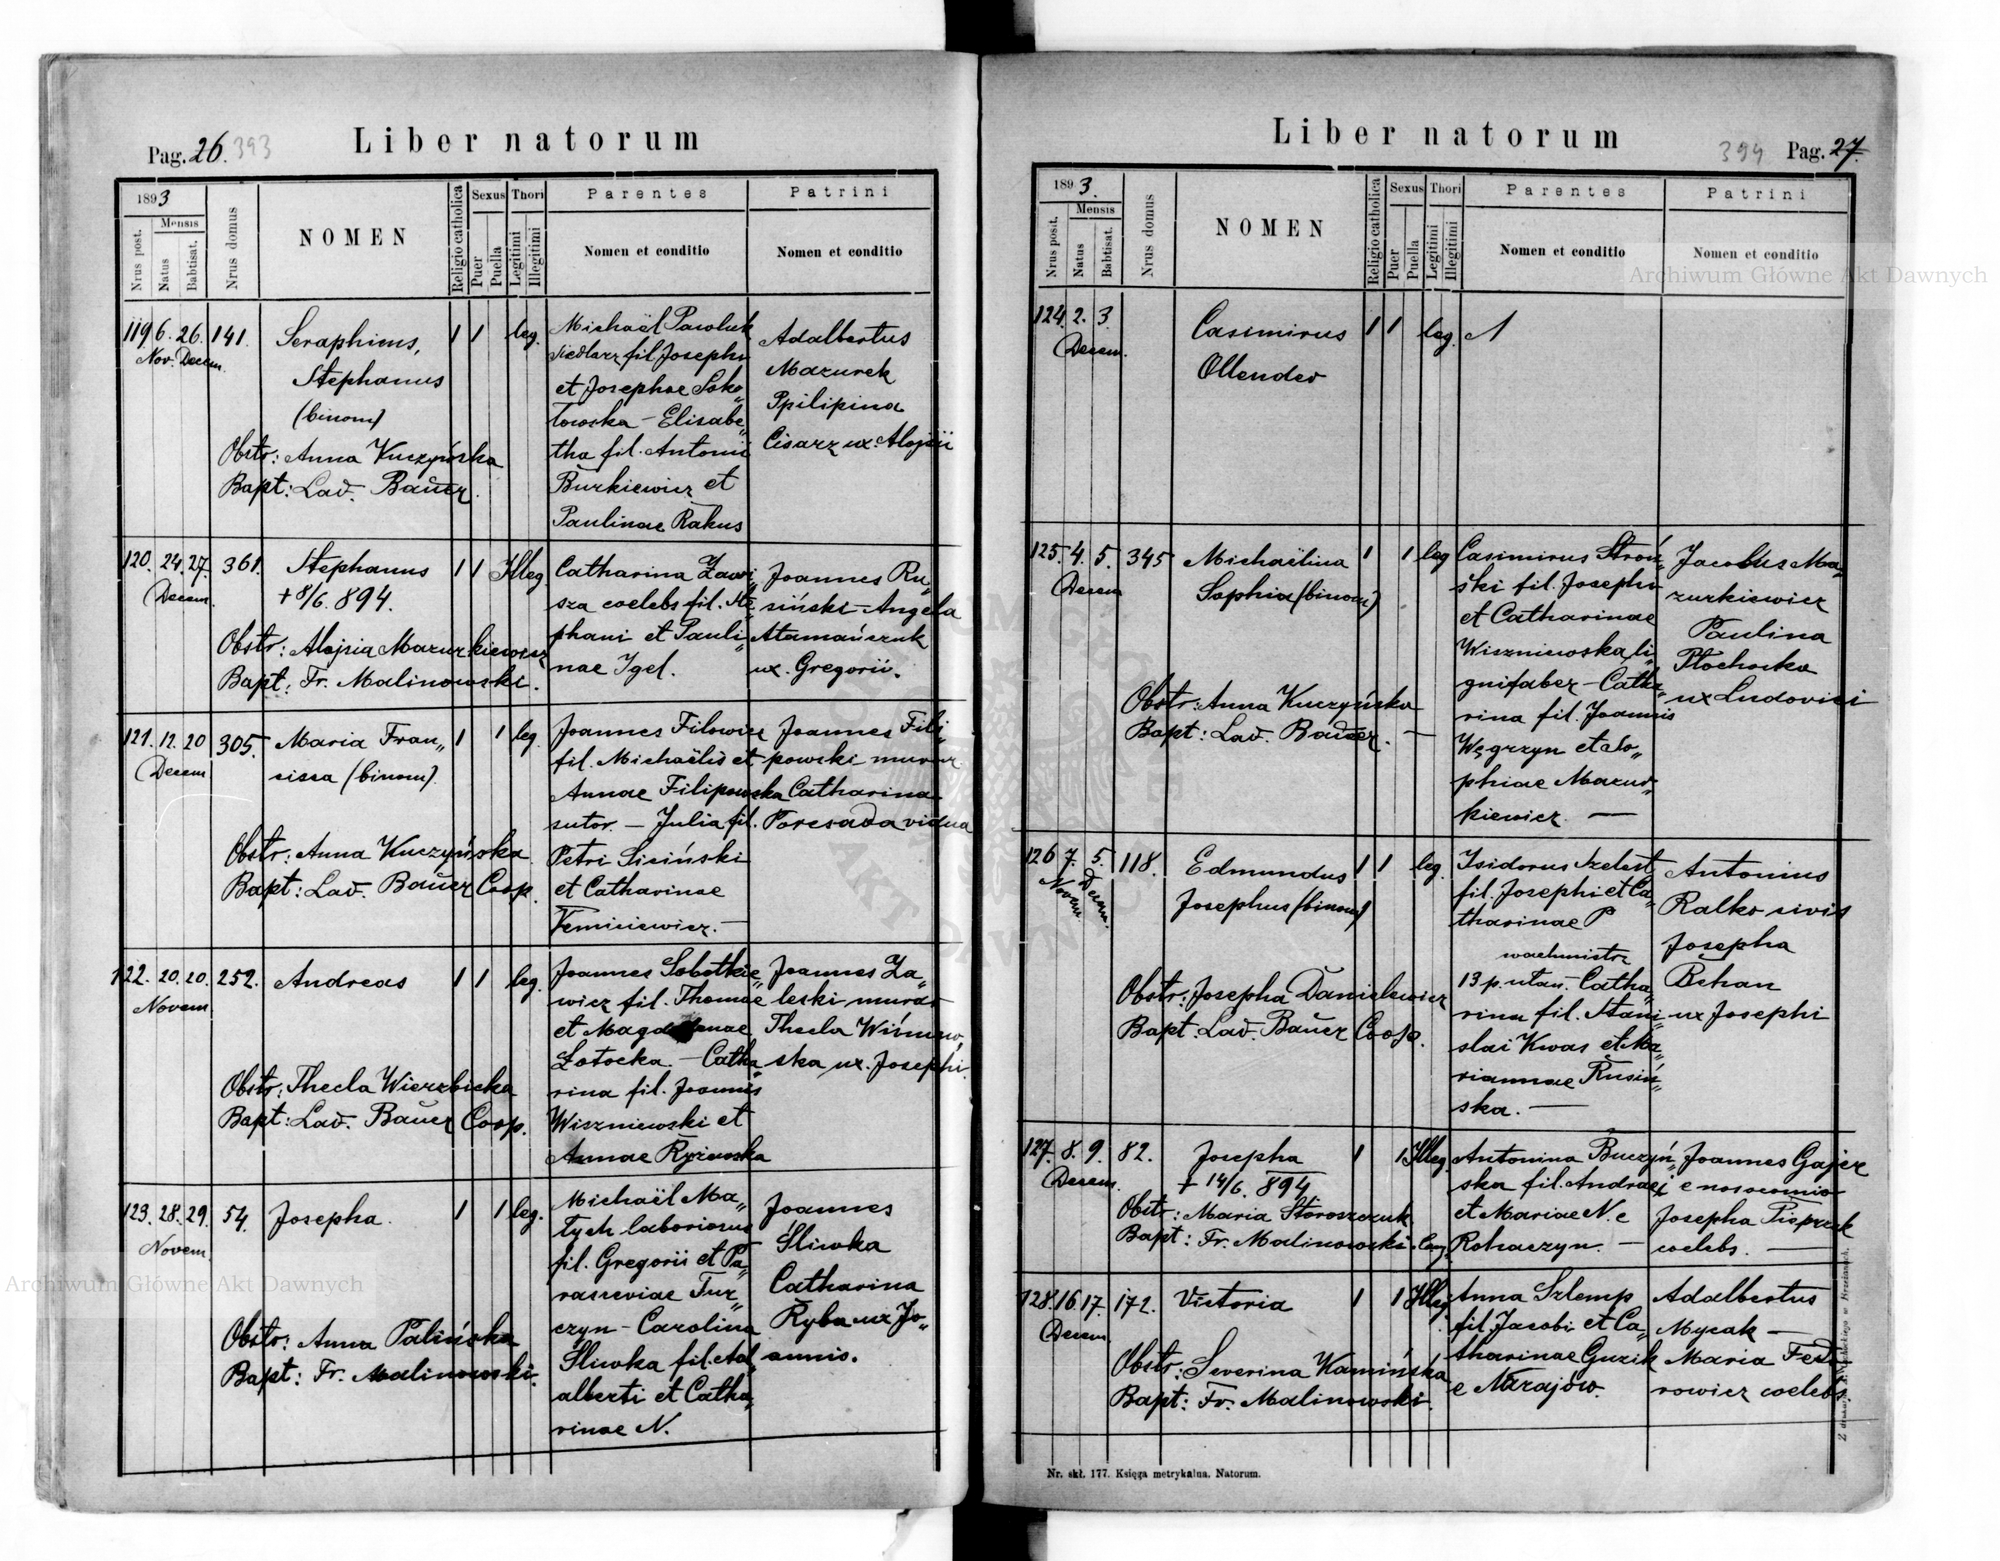 Liber natorum
Pag. 26. 393
1893
Nrus post.
Mensis
Natus
Babtisat.
Nrus domus
NOMEN
Religio catholica
Sexus
Puer
Puella
Thori
Legitimi
Illegitimi
Parentes
Nomen et conditio
Patrini
Nomen et conditio
119 6. 26. 141.
Nov. Decem.
Seraphinus,
Stephanus
(binom)
Obstr: Anna Kuczyńska
Bapt: Lad. Bauer.
1 1 leg.
Michaël Pawluk
siedlarz fil. Josephi
et Josephae Soko„
łowska – Elisabe„
tha fil. Antonii
Burkiewicz et
Paulinae Rakus
Adalbertus
Mazurek
Ppilipina
Cisarz ux. Alojsii
120. 24. 27. 361.
Decem.
Stephanus
+ 8/6. 894.
Obstr: Alojsia Mazurkiewicz
Bapt: Fr. Malinowski.
1 1 Illeg.
Catharina Zawi„
sza coelebs fil. Ste„
phani et Pauli„
nae Igel.
Joannes Ru„
siński – Angela
Atamańczuk
ux. Gregorii.
121. 12. 20 305.
Decem
Maria Fran„
cisca (binom).
Obstr: Anna Kuczyńska
Bapt: Lad. Bauer Coop.
1 1 leg.
Joannes Filowicz
fil. Michaëlis et
Annae Filipowska
sutor. – Julia fil.
Petri Siciński
et Catharinae
Temiciewicz. –
Joannes Fili„
powski murar.
Catharina
Poresada vidua
122. 20. 20. 252.
Novem
Andreas
Obstr: Thecla Wierzbicka
Bapt: Lad. Bauer Coop.
1 1 leg.
Joannes Sobotkie„
wicz fil. Thomae
et Magdalenae
Łotocka. – Catha„
rina fil. Joannis
Wiszniewski et
Annae Ryżewska
Joannes Za„
leski murar
Thecla Wiśniew„
ska ux. Josephi.
123. 28. 29. 54.
Novem
Josepha.
Obstr: Anna Palińska
Bapt: Fr. Malinowski.
1 1 leg.
Michaël Ma„
tych laboriosus
fil. Gregorii et Pa„
rasceviae Tur„
czyn – Carolina
Śliwka fil. Ad„
alberti et Catha„
rinae N.
Joannes
Śliwka
Catharina
Ryba ux Jo„
annis.
Liber natorum
394 Pag. 27.
1893.
Nrus post.
Mensis
Natus
Babtisat.
Nrus domus
NOMEN
Religio catholica
Sexus
Puer
Puella
Thori
Legitimi
Illegitimi
Parentes
Nomen et conditio
Patrini
Nomen et conditio
124. 2. 3.
Decem.
Casimirus
Ollender
1 1 leg.
125. 4. 5. 345
Decem
Michaëlina
Sophia (binom)
Obstr: Anna Kuczyńska
Bapt: Lad. Bauer. –
1 1 leg
Casimirus Stroń„
ski fil. Josephi
et Catharinae
Wiszniewska, li„
gnifaber – Catha„
rina fil. Joannis
Węgrzyn et So„
phiae Mazur„
kiewicz. –
Jacobus Ma„
zurkiewicz
Paulina
Płochocka
ux Ludovici
126 7. 5. 118.
Novem. Decem.
Edmundus
Josephus (binom)
Obstr: Josepha Danielewicz
Bapt: Lad. Bauer Coop.
1 1 leg.
Isidorus Szelest
fil. Josephi et Ca„
tharinae P
wachmistrz
13 p. ułan. – Catha„
rina fil. Stani„
slai Kwas et Ma„
riannae Rusiń„
ska. –
Antonius
Ralko civis
Josepha
Behan
ux Josephi
127. 8. 9. 82.
Decem.
Josepha
+ 14/6. 894
Obstr: Maria Storoszczuk
Bapt: Fr. Malinowski
1 1 Illeg.
Antonina Buczyń„
ska fil. Andreæ
et Mariae N. e
Rohaczyn. –
Joannes Gajer
e nosocomio
Josepha Pieprzek
coelebs. –
128. 16. 17. 172.
Decem
Victoria
Obstr: Severina Kamińska
Bapt: Fr. Malinowski.
1 1 Illeg.
Anna Szlemp
fil. Jacobi et Ca„
tharinae Guzik
e Narajów.
Adalbertus
Mycak –
Maria Fedo„
rowicz coelebs.
Nr. skł. 177. Księga metrykalna. Natorum.
Archiwum Główne Akt Dawnych
Archiwum Główne Akt Dawnych